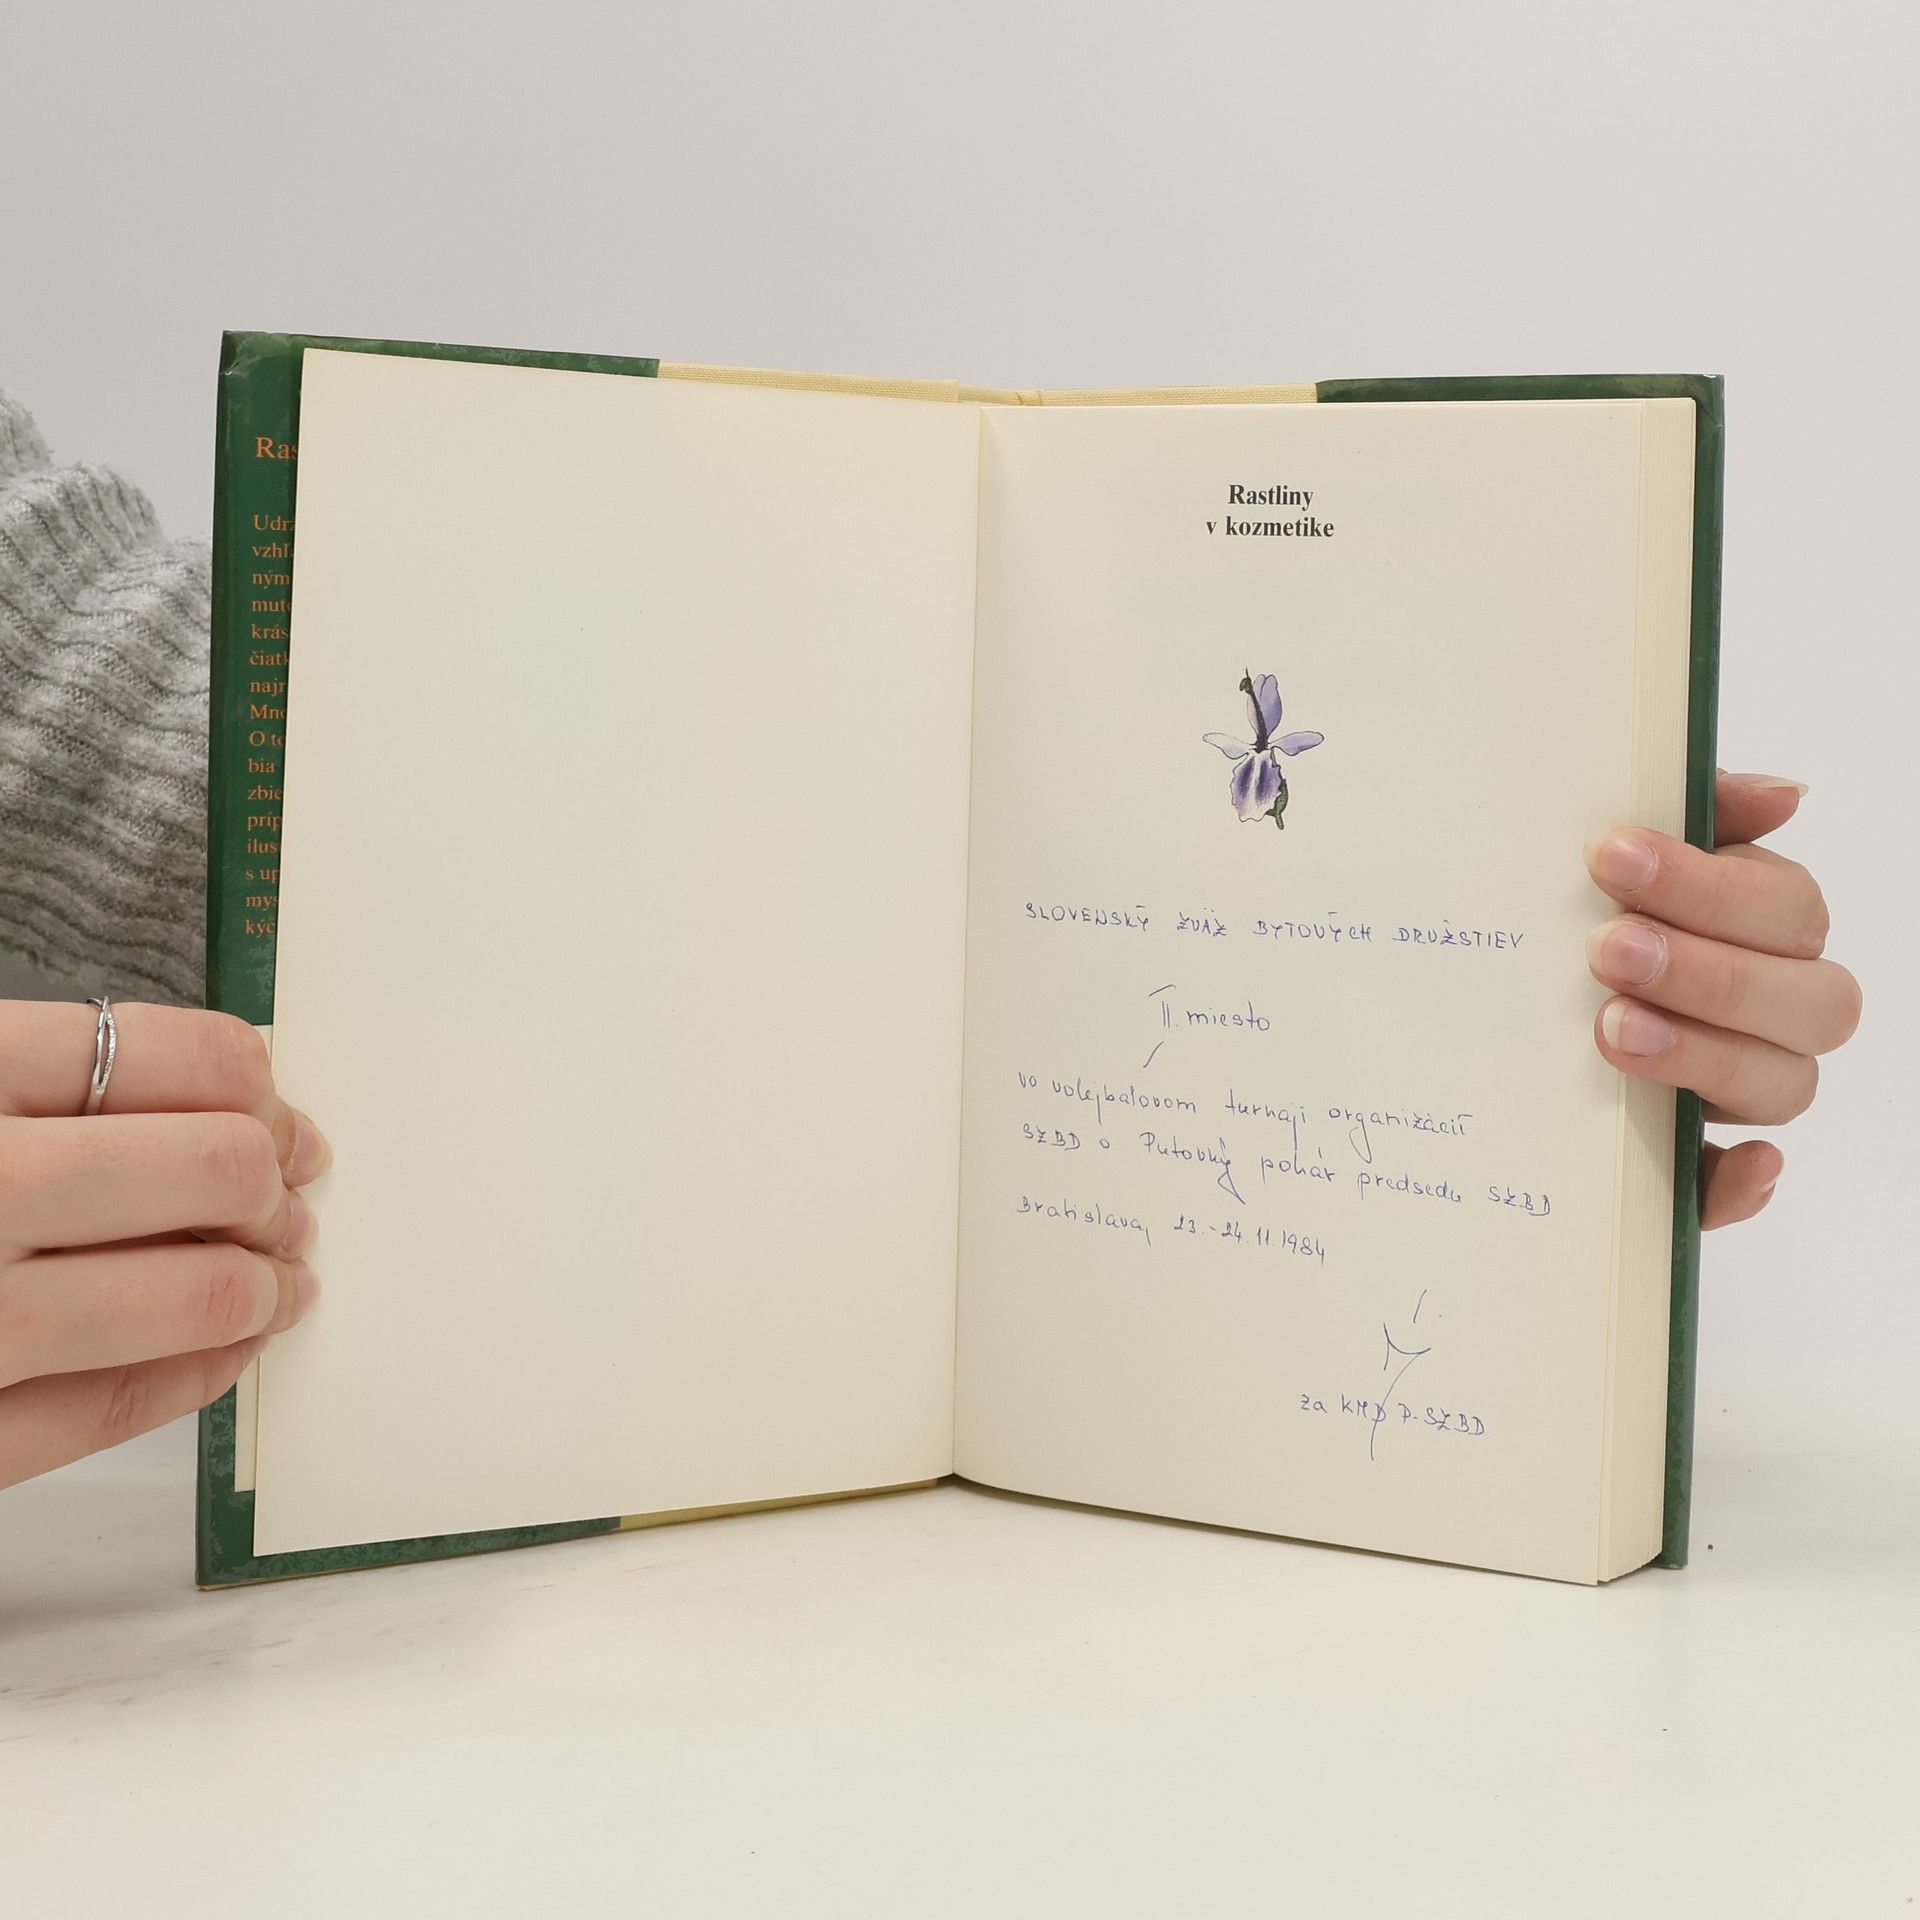 Ras
Udrž
vzhľa
ným
muto
krás
čiatk
najr
Mno
O to
bia
zbie
príp
ilus
s up
mys
kýc
Rastliny
v kozmetike
SLOVENSKÝ ZVÄZ BYTOVÝCH DRUŽSTIEV
II. miesto
vo volejbalovom turnaji organizácií
SZBD o Putovný pohár predsedu SZBD
Bratislava, 23.-24.11.1984
za KMD P-SZBD